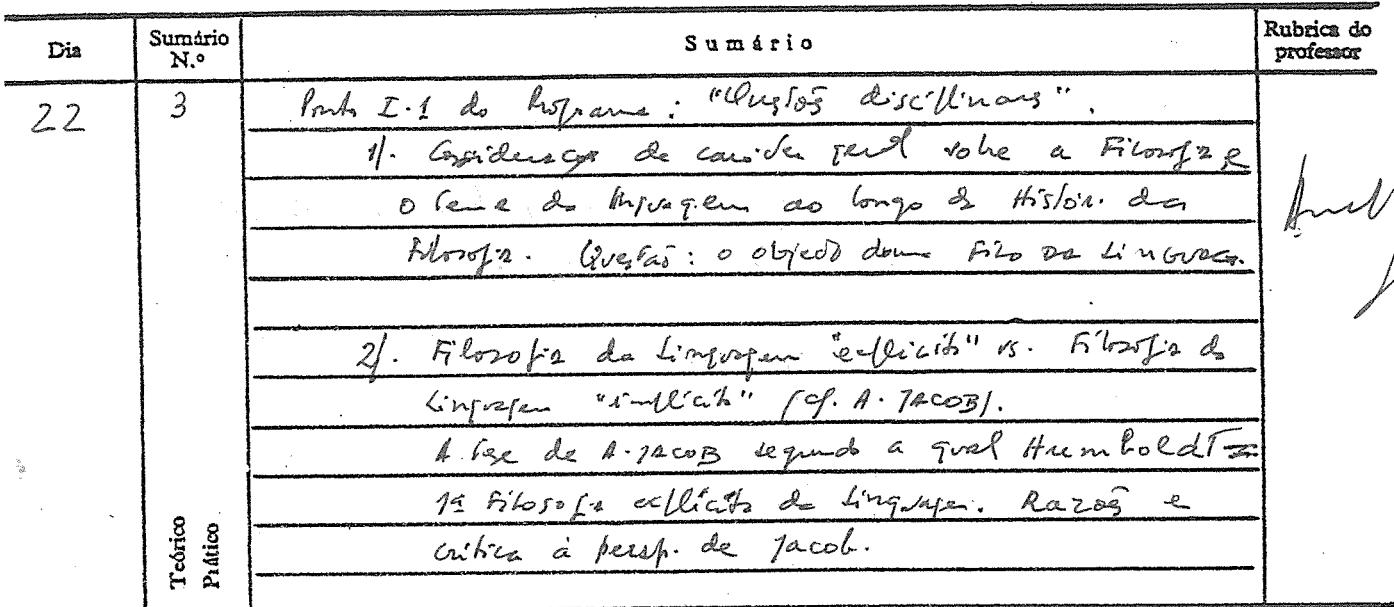 Dia
Sumário N.º
Sumário
Rubrica do professor
22
3
Ponto I.1 do Programa: "Questões disciplinares".
1/. Considerações de carácter geral sobre a Filosofia e
o tema da linguagem ao longo da História da
Filosofia. Questão: o objecto duma Filo da Linguag.
2/. Filosofia da Linguagem "explícita" vs. Filosofia da
Linguagem "implícita" (cf. A. JACOB).
A tese de A. JACOB segundo a qual Humboldt =
1ª Filosofia explícita da Linguagem. Razões e
crítica à persp. de Jacob.
Teórico
Prático